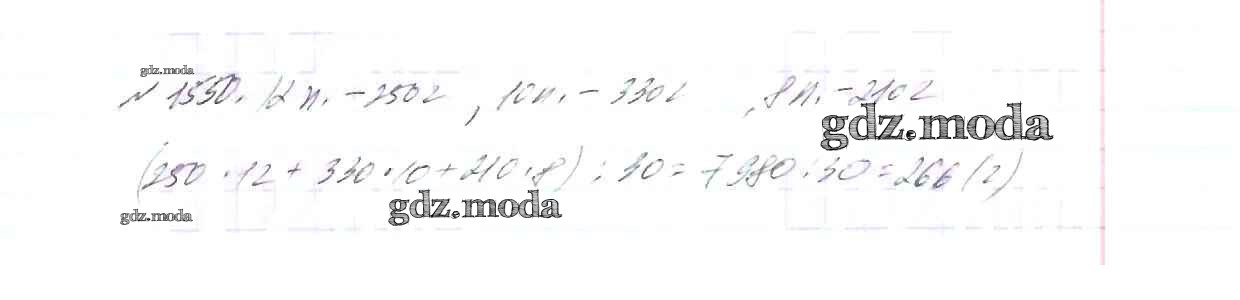 gdz.moda
№ 1550. 12 п. - 250 г, 10 п. - 330 г, 8 п. - 210 г
gdz.moda
(250 · 12 + 330 · 10 + 210 · 8) : 30 = 7980 : 30 = 266 (г)
gdz.moda
gdz.moda